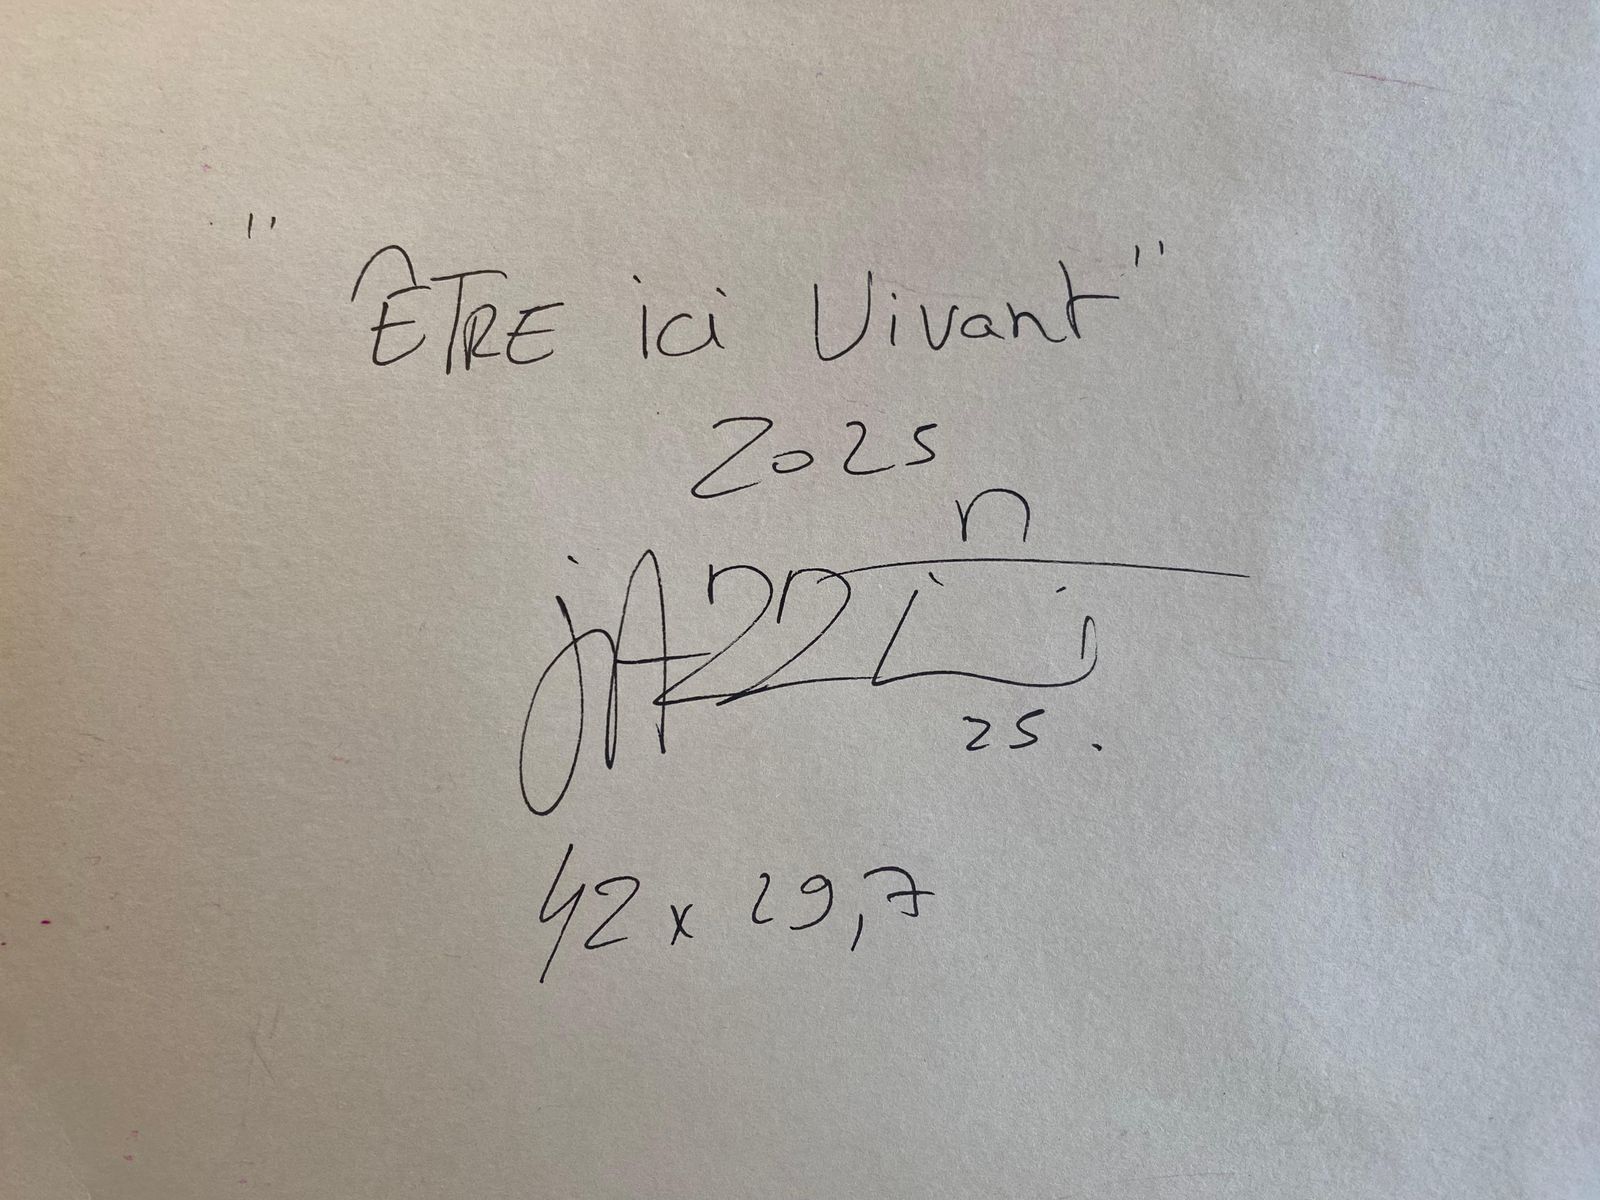 "ÊTRE ici Vivant"
2025
25.
42 x 29,7